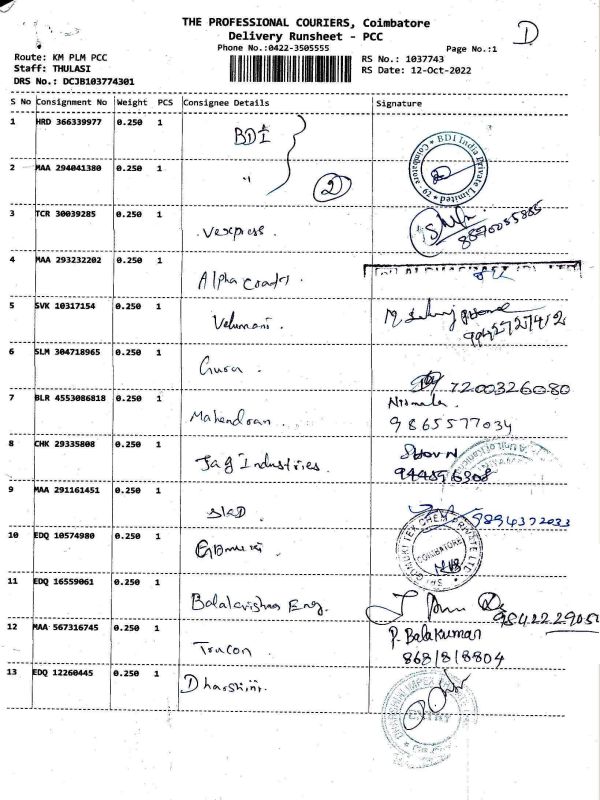 THE PROFESSIONAL COURIERS, Coimbatore
Delivery Runsheet - PCC
Phone No.:0422-3505555
Page No.:1
D
Route: KM PLM PCC
Staff: THULASI
DRS No.: DCJB103774301
RS No.: 1037743
RS Date: 12-Oct-2022
S No Consignment No Weight PCS Consignee Details Signature
1 HRD 366339977 0.250 1 BDI
BDI India Private Limited * Coimbatore - 29 *
2 MAA 294041380 0.250 1 "
2
3 TCR 30039285 0.250 1 vexpress.
4 MAA 293232202 0.250 1 Alpha
5 SVK 10317154 0.250 1 Velumani.
9942727412
6 SLM 304718965 0.250 1 Guru
7200326080
7 BLR 4553086818 0.250 1 Mahendran
Nirmala.
9865577034
8 CHK 29335808 0.250 1 Jag Industries.
9 MAA 291161451 0.250 1 SKD
9894372033
10 EDQ 10574980 0.250 1
COIMBATORE
11 EDQ 16559061 0.250 1 Balakrishna Eng.
12 MAA 567316745 0.250 1 Trucon
P. Balakumar
868/8/8804
13 EDQ 12260445 0.250 1 Dharshini.
ENTRY